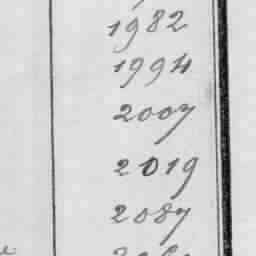 1982
1994
2007
2019
2087